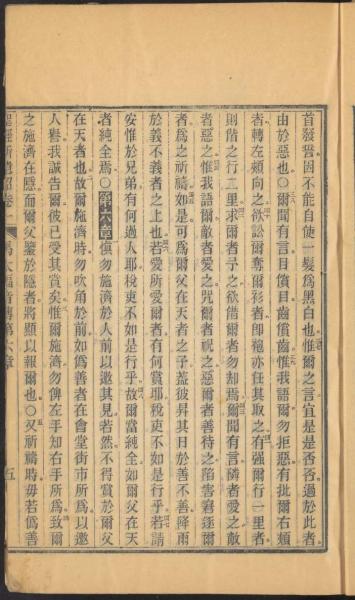 首發誓因不能自使一髮爲黑白也惟爾之言宜是是否否過於此者
由於惡也〇爾聞有言目償目齒償齒惟我語爾勿拒惡有批爾右頰
者轉左頰向之欲訟爾奪爾衫者即袍亦任其取之有强爾行一里者
則偕之行二里求爾者予之欲借爾者勿却焉爾聞有言隣者愛之敵
者惡之惟我語爾敵者愛之咒爾者祝之惡爾者善待之陷害窘逐爾
者爲之祈禱如是可爲爾父在天者之子蓋彼昇其日於善不善降雨
於義不義者之上也若愛所愛爾者有何賞耶稅吏不如是行乎若請
安惟於兄弟有何過人耶稅吏不如是行乎故爾當純全如爾父在天
者純全焉〇第六章愼勿施濟於人前以邀其見若然不得賞於爾父
在天者也故爾施濟時勿吹角於前如僞善者在會堂街市所爲以邀
人譽我誠告爾彼已受其賞矣惟爾施濟勿俾左手知右手所爲致爾
之施濟在隱而爾父鑒於隱者將顯以報爾也〇又祈禱時毋若僞善
聖經新遺詔卷一 馬太福音傳第六章 五